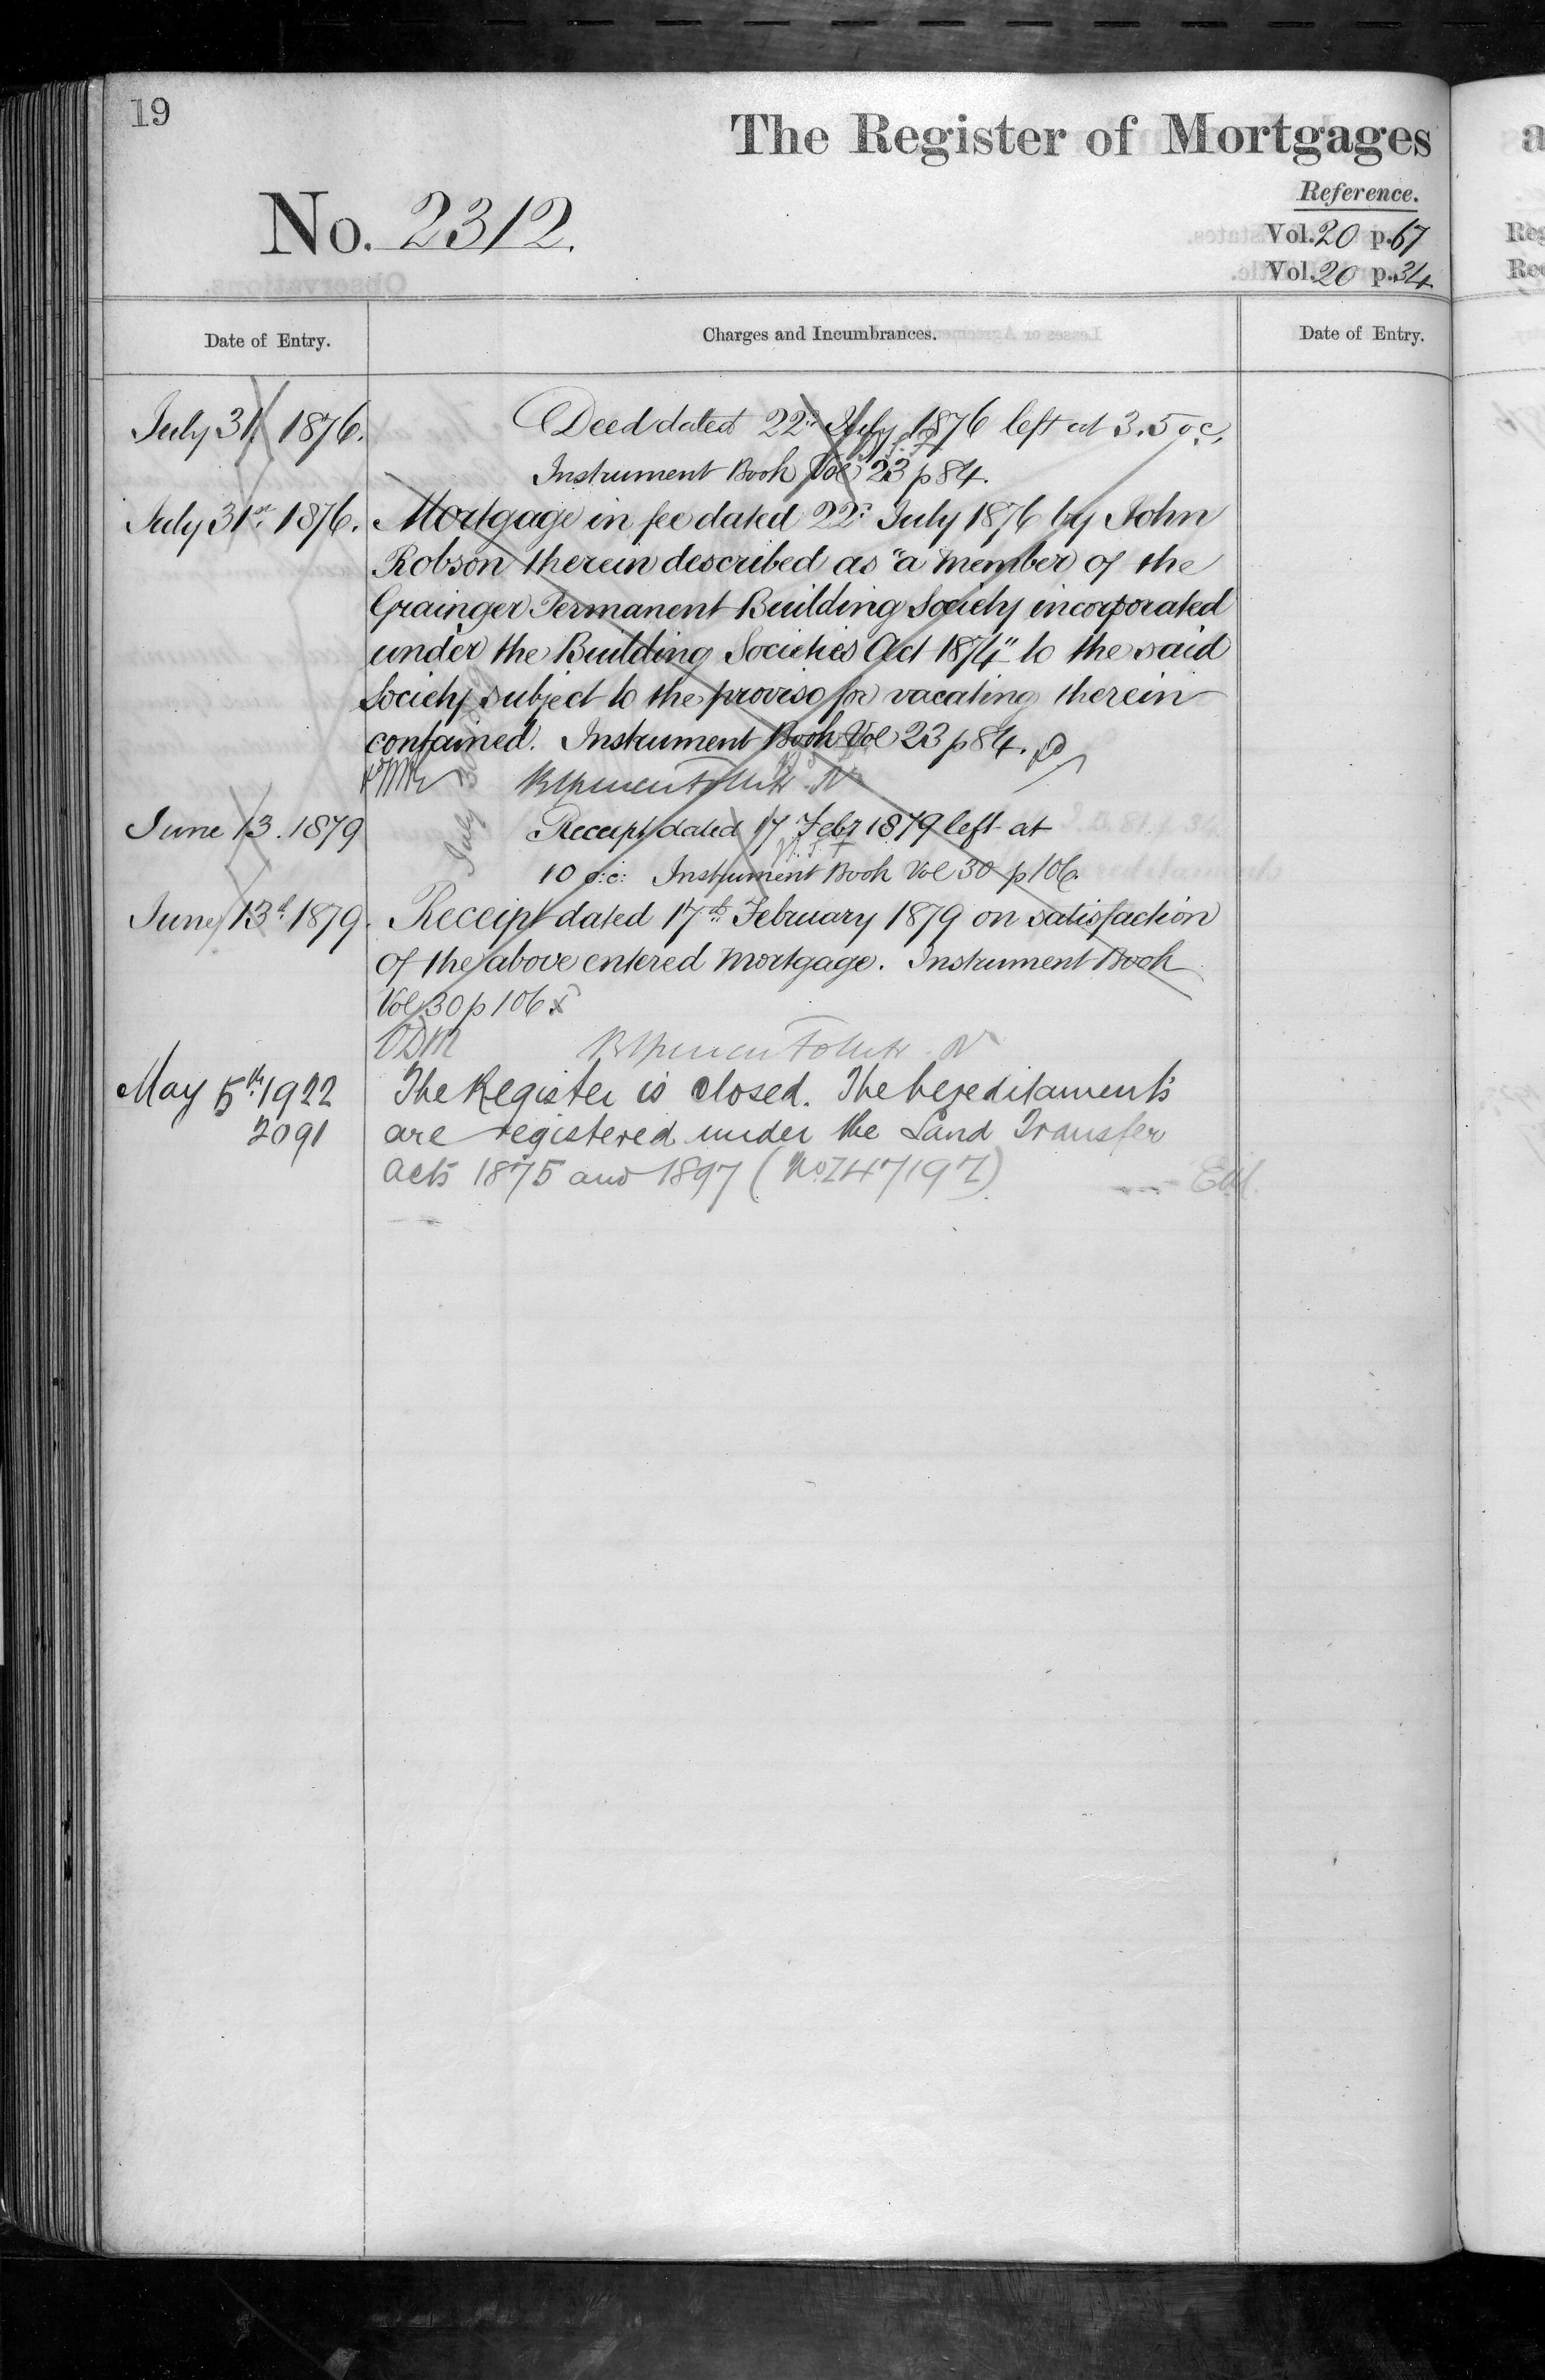 19
The Register of Mortgages
Reference.
No. 2312.
Vol. 20 p. 67
Vol. 20 p. 34
Date of Entry.
Charges and Incumbrances.
Date of Entry.
July 31. 1876.
Deed dated 22d July 1876 left at 3.5 oc,
Instrument Book Vol 23 p 84.
July 31st 1876.
Mortgage in fee dated 22d July 1876 by John
Robson therein described as "a member of the
Grainger Permanent Building Society incorporated
under the Building Societies Act 1874" to the said
Society subject to the proviso for vacating therein
contained. Instrument Book Vol 23 p 84.
June 13. 1879
Receipt dated 17 Feby 1879 left at
10 o:c: Instrument Book Vol 30 p 106.
June 13th 1879.
Receipt dated 17th February 1879 on satisfaction
of the above entered Mortgage. Instrument Book
Vol 30 p 106.
May 5th 1922
The Register is closed. The hereditaments
2091
are registered under the Land Transfer
Acts 1875 and 1897 (No